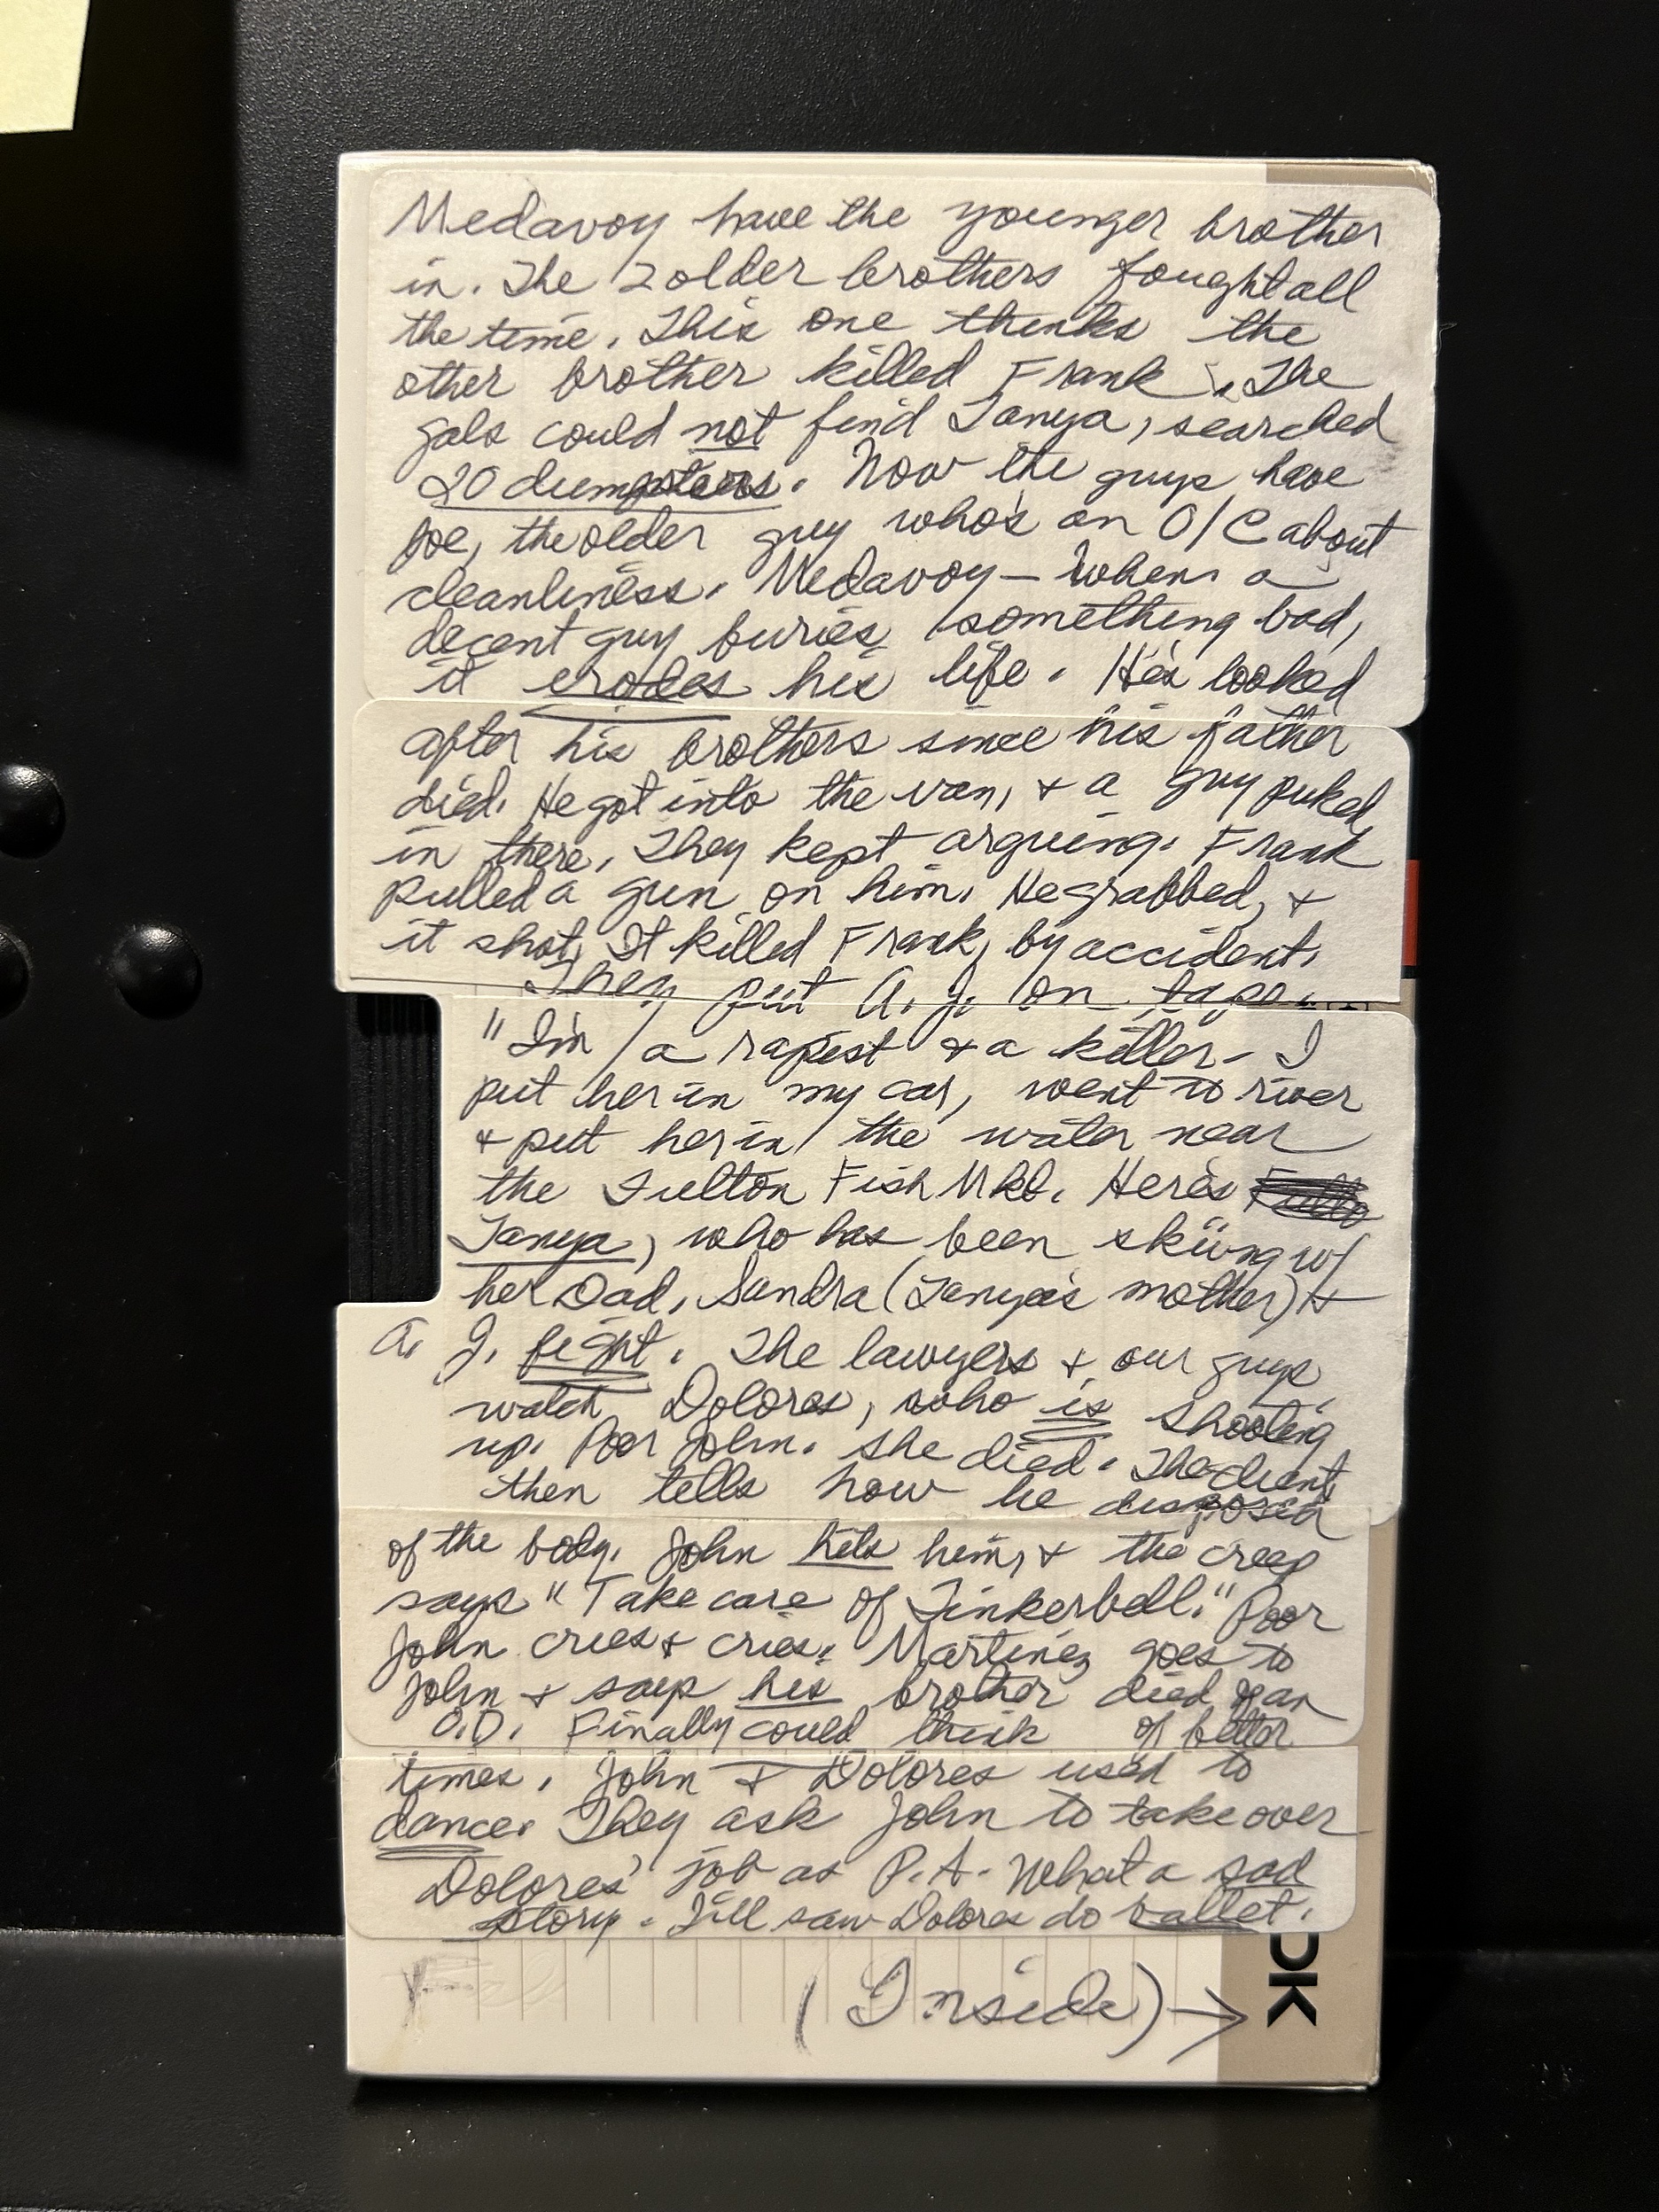 Medavoy have the younger brother
in. The 2 older brothers fought all
the time. This one thinks the
other brother killed Frank. The
gals could not find Tanya, searched
20 dumpsters. Now the guys have
Joe, the older guy who's an O/C about
cleanliness. Medavoy – when a
decent guy buries something bad,
it erodes his life. He's looked
after his brothers since his father
died. He got into the van, + a guy puked
in there. They kept arguing. Frank
pulled a gun on him. He grabbed, +
it shot. It killed Frank, by accident.
They put A. J. on tape.
"I'm a rapist + a killer – I
put her in my car, went to river
+ put her in the water near
the Fulton Fish Mkt. Here's
Tanya, who has been skiing w/
her Dad. Sandra (Tanya's mother) +
A. J. fight. The lawyers + our guys
watch Dolores, who is shooting
up. Poor John. She died. The client
then tells how he disposed
of the body. John hits him, + the creep
says "Take care of Tinkerbell." Poor
John cries + cries. Martinez goes to
John + says his brother died of an
O.D. Finally could think of better
times. John + Dolores used to
dance. They ask John to take over
Dolores' job as P.A. What a sad
story. Jill saw Dolores do ballet.
(Inside) →
DK